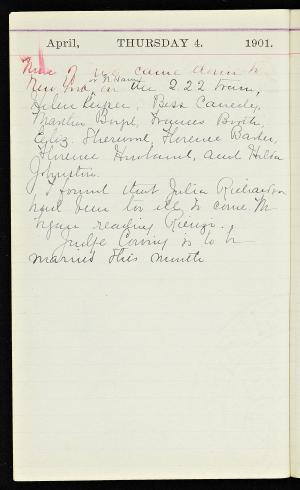 April, THURSDAY 4. 1901.
of us came down to
New York, or N. Haven, on the 2.22 train,
Helen Keyser, Bess Canedy,
Martha Boyd, Frances Booth,
Eliz. Sherwood, Florence Barber,
Florence and Hilda
Johnston.
I found that Julia Richardson
had been too ill to come. M
began reading Rienzi.
Judge is to be
married this month